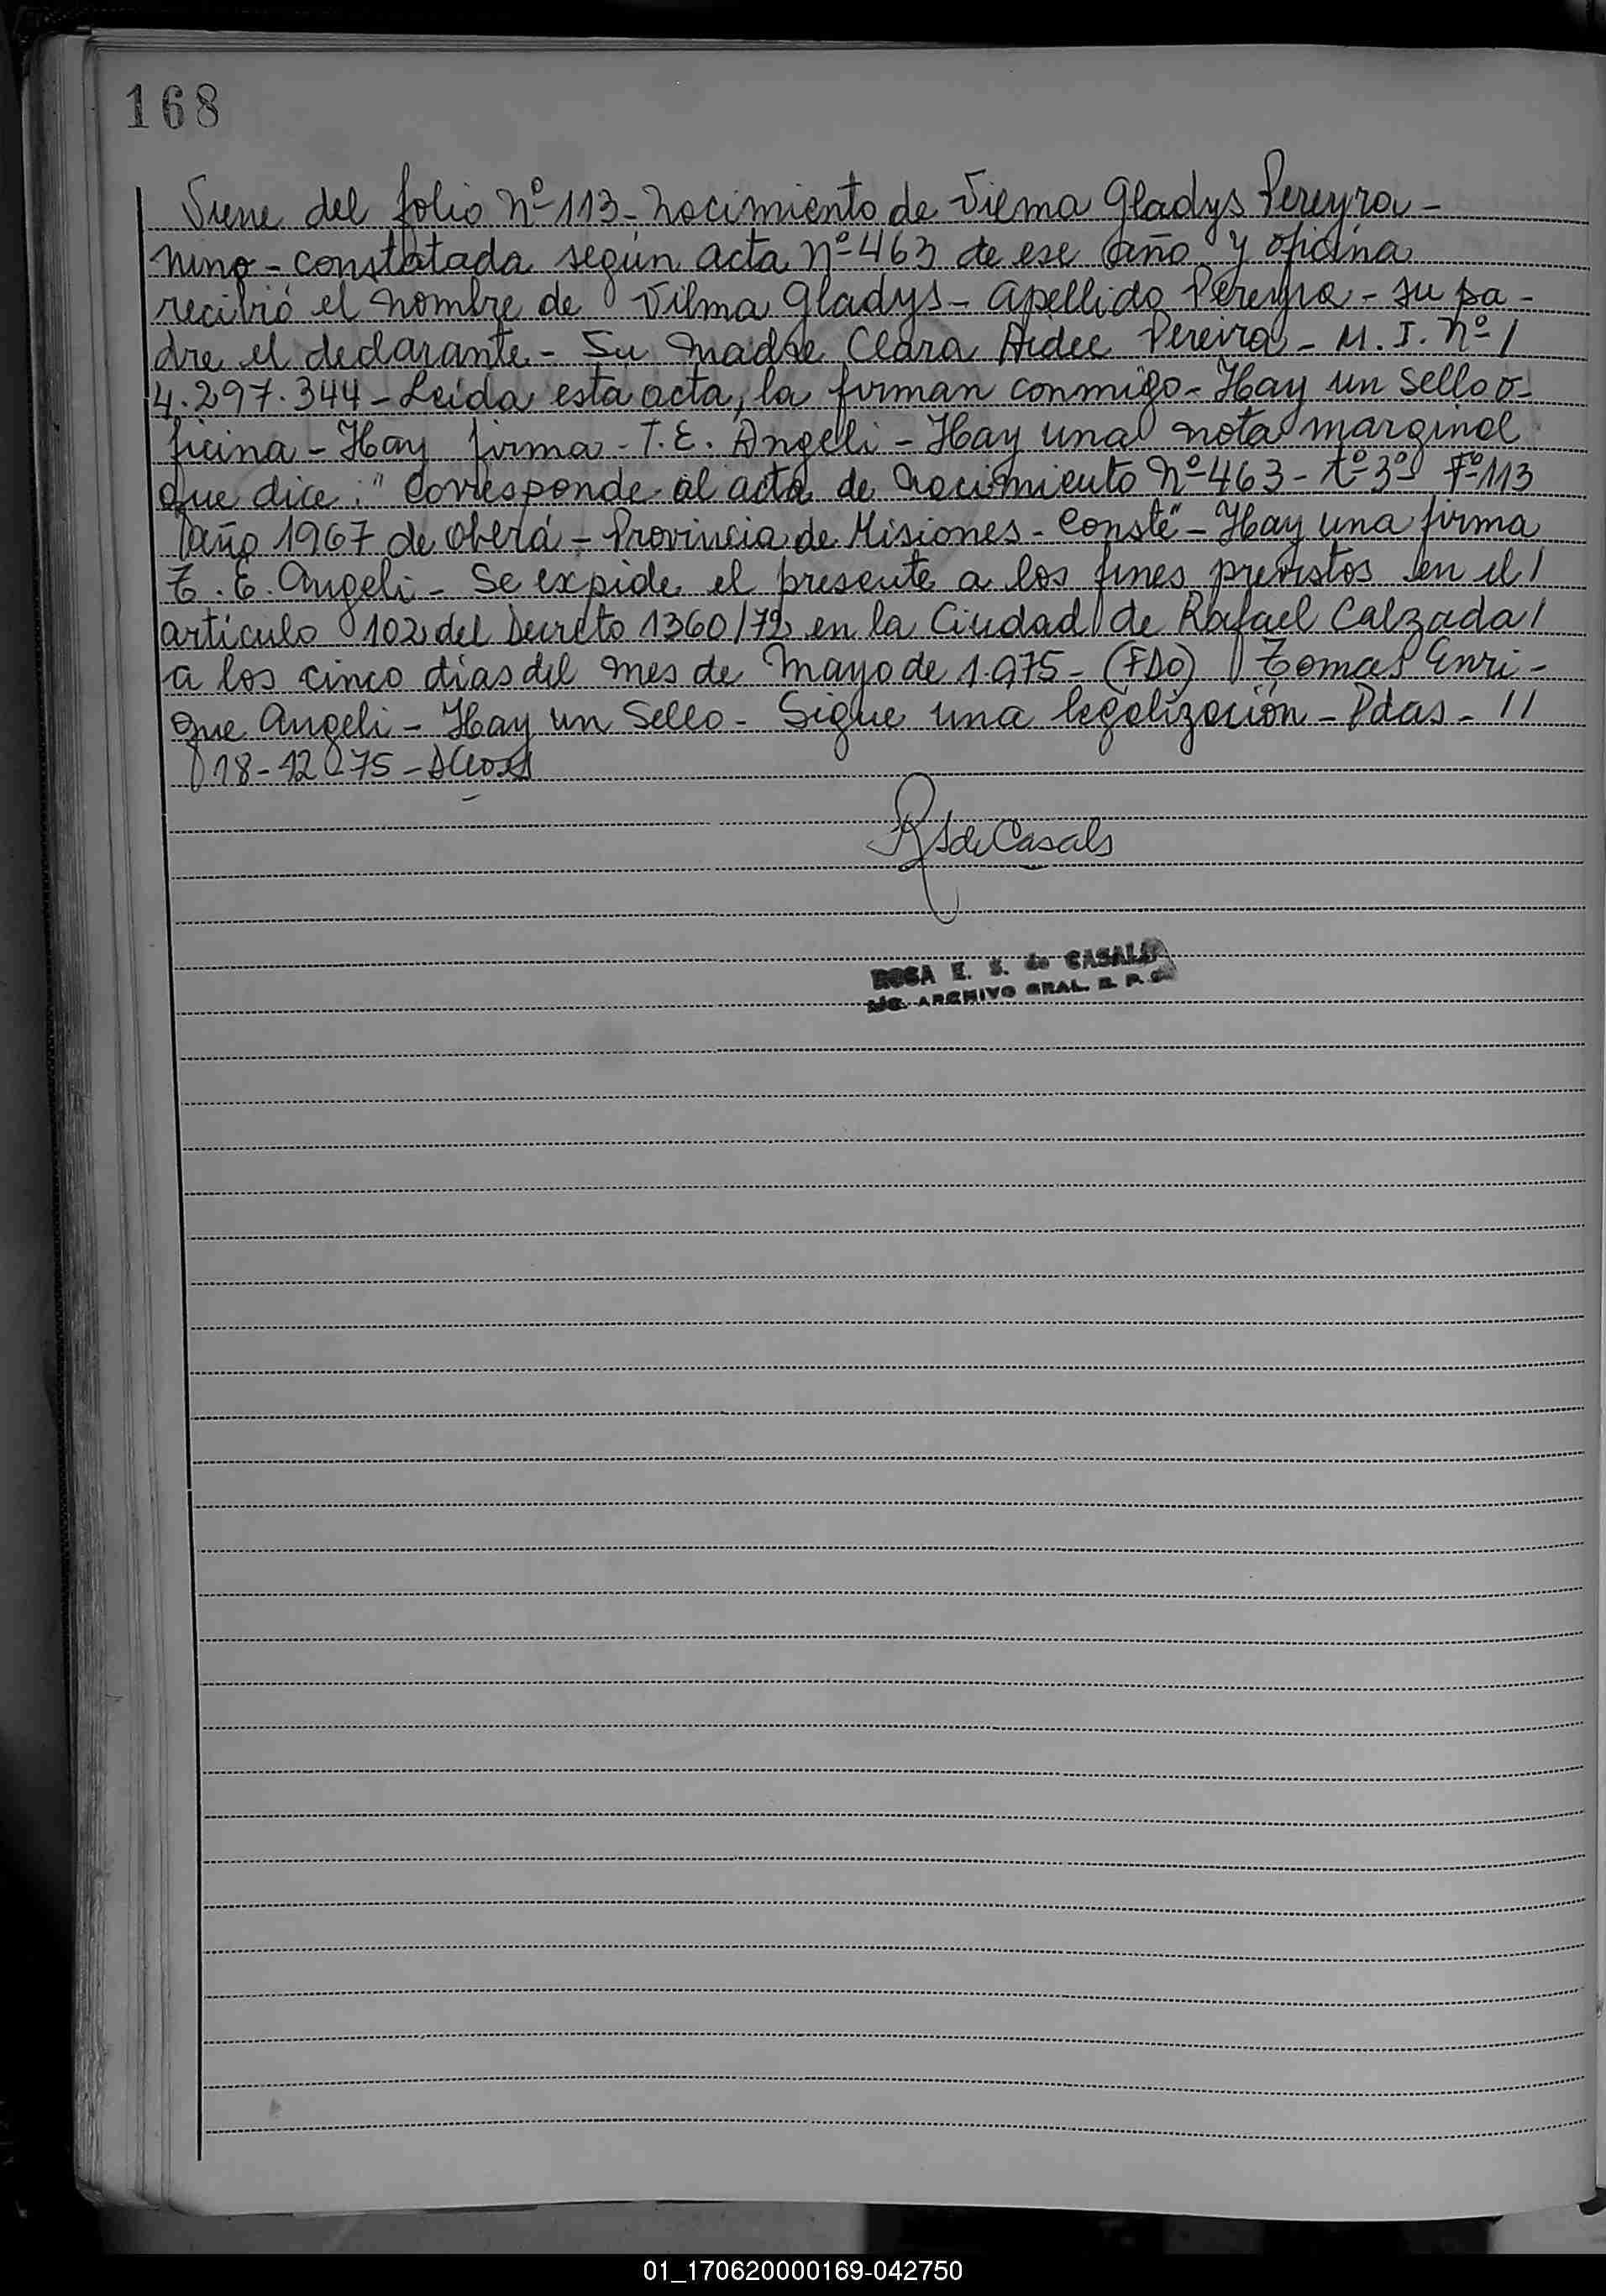 168
Viene del folio Nº 113 - Nacimiento de Vilma Gladys Pereyra -
nino - constatada según acta Nº 463 de ese año y oficina
recibió el nombre de Vilma Gladys - Apellido Pereyra - su pa-
dre el declarante - Su madre Clara Aidee Pereira - M. I. Nº /
4.297.344 - Leída esta acta, la firman conmigo - Hay un sello o-
ficina - Hay firma - T. E. Angeli - Hay una nota marginal
que dice: "Corresponde al acta de Nacimiento Nº 463 - tº 3º Fº 113
año 1967 de Oberá - Provincia de Misiones - Conste" - Hay una firma
T. E. Angeli - Se expide el presente a los fines previstos en el /
artículo 102 del Decreto 1360/72 en la Ciudad de Rafael Calzada /
a los cinco días del mes de Mayo de 1.975 - (FDO) Tomas Enri-
que Angeli - Hay un Sello - Sigue una legalización - Pdas - //
18-12-75 -
RSdeCasals
ROSA E. S. de CASALS
ARCHIVO GRAL. R. P.
01_170620000169-042750